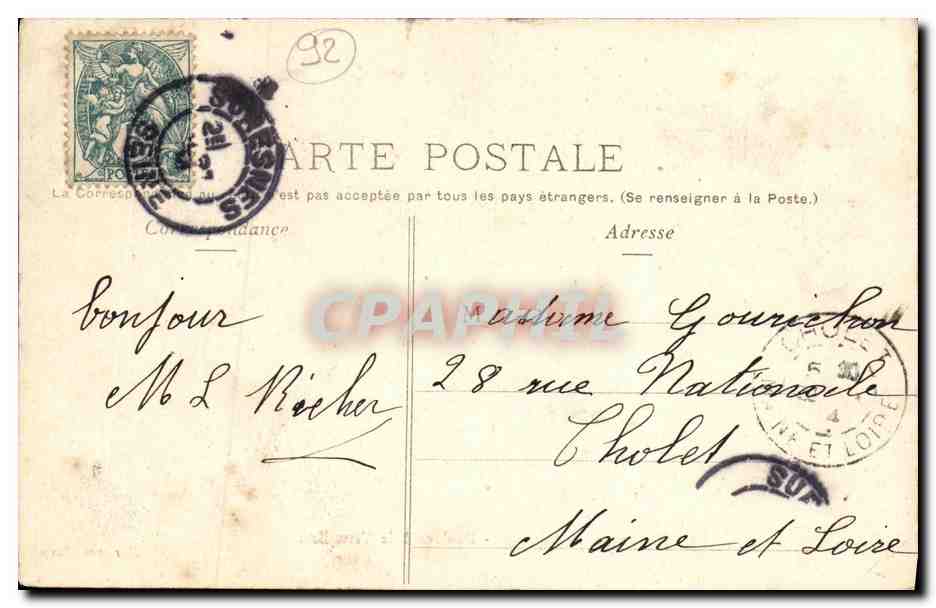 92
SURESNES
SEINE
CARTE POSTALE
La Correspondance au est pas acceptée par tous les pays étrangers. (Se renseigner à la Poste.)
Correspondance
Adresse
bonjour
M L Richer
CPAPHIL
Madame Gourichon
28 rue Nationale
Cholet
Maine et Loire
CHOLET
4
NE ET LOIRE
SUR